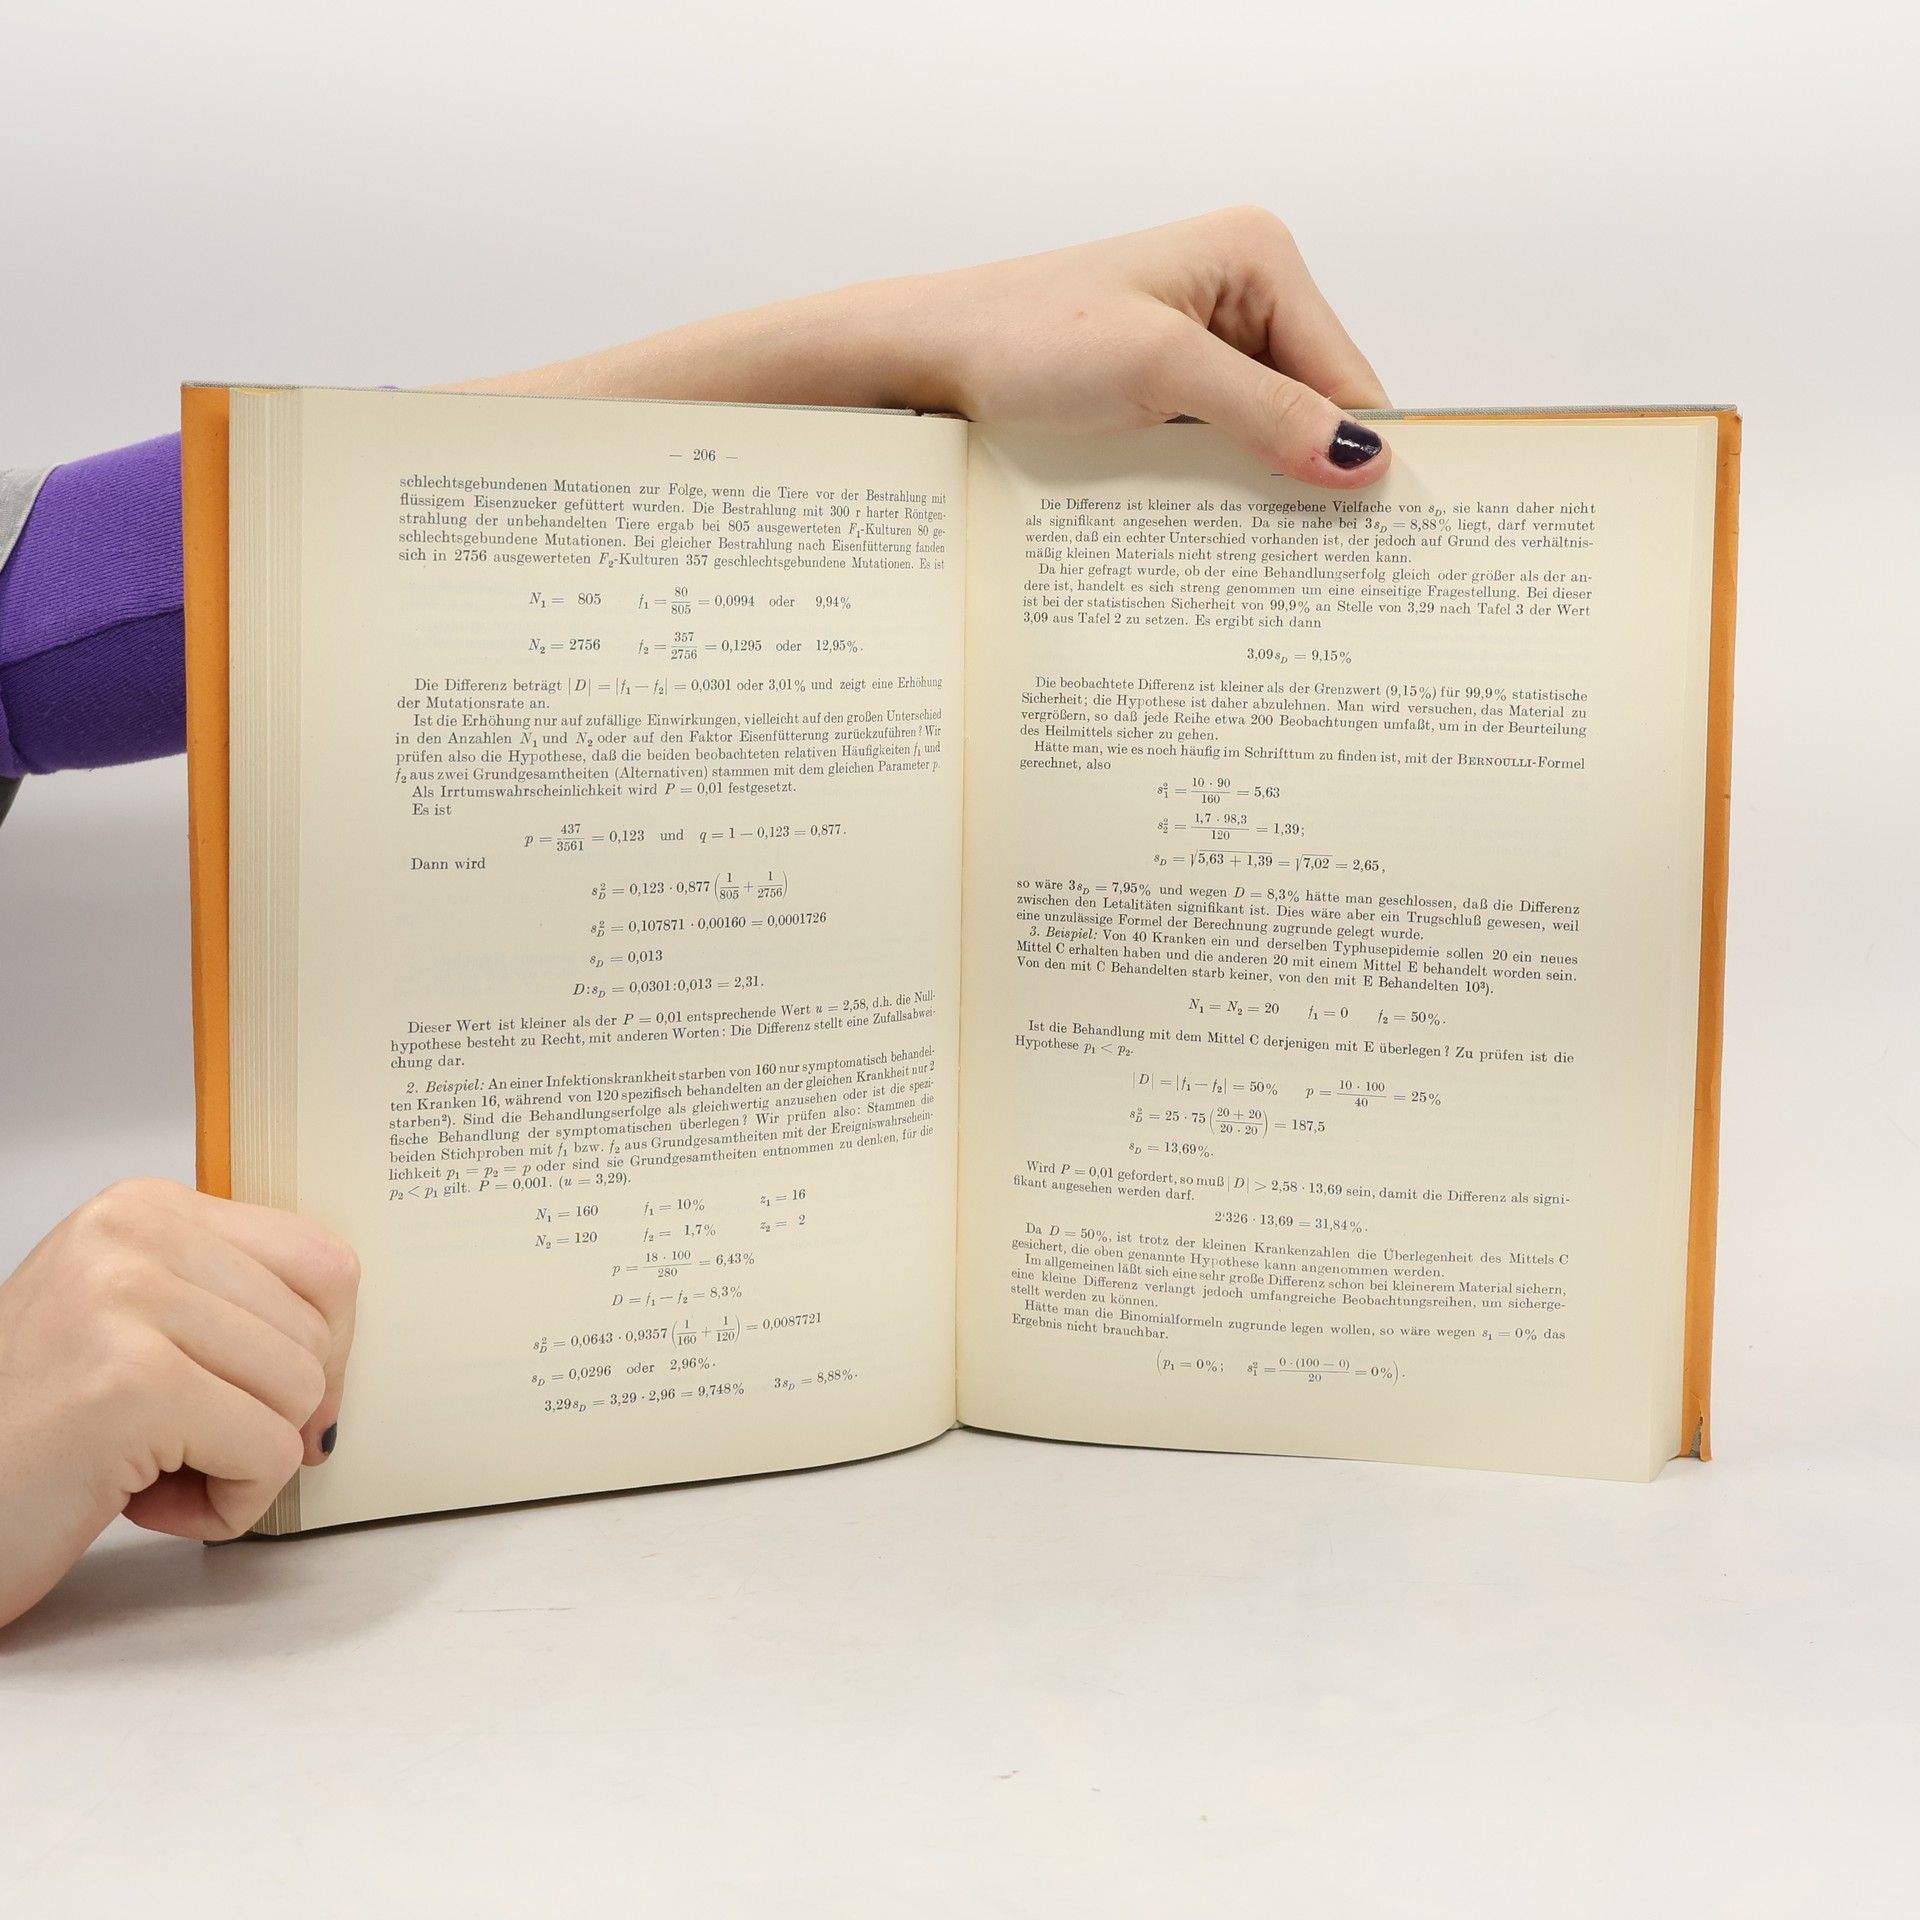 — 206 —
schlechtsgebundenen Mutationen zur Folge, wenn die Tiere vor der Bestrahlung mit
flüssigem Eisenzucker gefüttert wurden. Die Bestrahlung mit 300 r harter Röntgen-
strahlung der unbehandelten Tiere ergab bei 805 ausgewerteten F₁-Kulturen 80 ge-
schlechtsgebundene Mutationen. Bei gleicher Bestrahlung nach Eisenfütterung fanden
sich in 2756 ausgewerteten F₂-Kulturen 357 geschlechtsgebundene Mutationen. Es ist
N₁ = 805 f₁ = 80/805 = 0,0994 oder 9,94%
N₂ = 2756 f₂ = 357/2756 = 0,1295 oder 12,95%.
Die Differenz beträgt |D| = |f₁ — f₂| = 0,0301 oder 3,01% und zeigt eine Erhöhung
der Mutationsrate an.
Ist die Erhöhung nur auf zufällige Einwirkungen, vielleicht auf den großen Unterschied
in den Anzahlen N₁ und N₂ oder auf den Faktor Eisenfütterung zurückzuführen? Wir
prüfen also die Hypothese, daß die beiden beobachteten relativen Häufigkeiten f₁ und
f₂ aus zwei Grundgesamtheiten (Alternativen) stammen mit dem gleichen Parameter p.
Als Irrtumswahrscheinlichkeit wird P = 0,01 festgesetzt.
Es ist
p = 437/3561 = 0,123 und q = 1 — 0,123 = 0,877.
Dann wird
s_D² = 0,123 · 0,877 (1/805 + 1/2756)
s_D² = 0,107871 · 0,00160 = 0,0001726
s_D = 0,013
D:s_D = 0,0301:0,013 = 2,31.
Dieser Wert ist kleiner als der P = 0,01 entsprechende Wert u = 2,58, d.h. die Null-
hypothese besteht zu Recht, mit anderen Worten: Die Differenz stellt eine Zufallsabwei-
chung dar.
2. Beispiel: An einer Infektionskrankheit starben von 160 nur symptomatisch behandel-
ten Kranken 16, während von 120 spezifisch behandelten an der gleichen Krankheit nur 2
starben²). Sind die Behandlungserfolge als gleichwertig anzusehen oder ist die spezi-
fische Behandlung der symptomatischen überlegen? Wir prüfen also: Stammen die
beiden Stichproben mit f₁ bzw. f₂ aus Grundgesamtheiten mit der Ereigniswahrschein-
lichkeit p₁ = p₂ = p oder sind sie Grundgesamtheiten entnommen zu denken, für die
p₂ < p₁ gilt. P = 0,001. (u = 3,29).
N₁ = 160 f₁ = 10% z₁ = 16
N₂ = 120 f₂ = 1,7% z₂ = 2
p = 18 · 100/280 = 6,43%
D = f₁ — f₂ = 8,3%
s_D² = 0,0643 · 0,9357 (1/160 + 1/120) = 0,0087721
s_D = 0,0296 oder 2,96%.
3,29 s_D = 3,29 · 2,96 = 9,748% 3 s_D = 8,88%.
Die Differenz ist kleiner als das vorgegebene Vielfache von s_D, sie kann daher nicht
als signifikant angesehen werden. Da sie nahe bei 3 s_D = 8,88% liegt, darf vermutet
werden, daß ein echter Unterschied vorhanden ist, der jedoch auf Grund des verhältnis-
mäßig kleinen Materials nicht streng gesichert werden kann.
Da hier gefragt wurde, ob der eine Behandlungserfolg gleich oder größer als der an-
dere ist, handelt es sich streng genommen um eine einseitige Fragestellung. Bei dieser
ist bei der statistischen Sicherheit von 99,9% an Stelle von 3,29 nach Tafel 3 der Wert
3,09 aus Tafel 2 zu setzen. Es ergibt sich dann
3,09 s_D = 9,15%
Die beobachtete Differenz ist kleiner als der Grenzwert (9,15%) für 99,9% statistische
Sicherheit; die Hypothese ist daher abzulehnen. Man wird versuchen, das Material zu
vergrößern, so daß jede Reihe etwa 200 Beobachtungen umfaßt, um in der Beurteilung
des Heilmittels sicher zu gehen.
Hätte man, wie es noch häufig im Schrifttum zu finden ist, mit der BERNOULLI-Formel
gerechnet, also
s₁² = 10 · 90/160 = 5,63
s₂² = 1,7 · 98,3/120 = 1,39;
s_D = √5,63 + 1,39 = √7,02 = 2,65,
so wäre 3 s_D = 7,95% und wegen D = 8,3% hätte man geschlossen, daß die Differenz
zwischen den Letalitäten signifikant ist. Dies wäre aber ein Trugschluß gewesen, weil
eine unzulässige Formel der Berechnung zugrunde gelegt wurde.
3. Beispiel: Von 40 Kranken ein und derselben Typhusepidemie sollen 20 ein neues
Mittel C erhalten haben und die anderen 20 mit einem Mittel E behandelt worden sein.
Von den mit C Behandelten starb keiner, von den mit E Behandelten 10³).
N₁ = N₂ = 20 f₁ = 0 f₂ = 50%.
Ist die Behandlung mit dem Mittel C derjenigen mit E überlegen? Zu prüfen ist die
Hypothese p₁ < p₂.
|D| = |f₁ — f₂| = 50% p = 10 · 100/40 = 25%
s_D² = 25 · 75 (20 + 20/20 · 20) = 187,5
s_D = 13,69%.
Wird P = 0,01 gefordert, so muß |D| > 2,58 · 13,69 sein, damit die Differenz als signi-
fikant angesehen werden darf.
2'326 · 13,69 = 31,84%.
Da D = 50%, ist trotz der kleinen Krankenzahlen die Überlegenheit des Mittels C
gesichert, die oben genannte Hypothese kann angenommen werden.
Im allgemeinen läßt sich eine sehr große Differenz schon bei kleinerem Material sichern,
eine kleine Differenz verlangt jedoch umfangreiche Beobachtungsreihen, um sicherge-
stellt werden zu können.
Hätte man die Binomialformeln zugrunde legen wollen, so wäre wegen s₁ = 0% das
Ergebnis nicht brauchbar.
(p₁ = 0%; s₁² = 0 · (100 — 0)/20 = 0%).